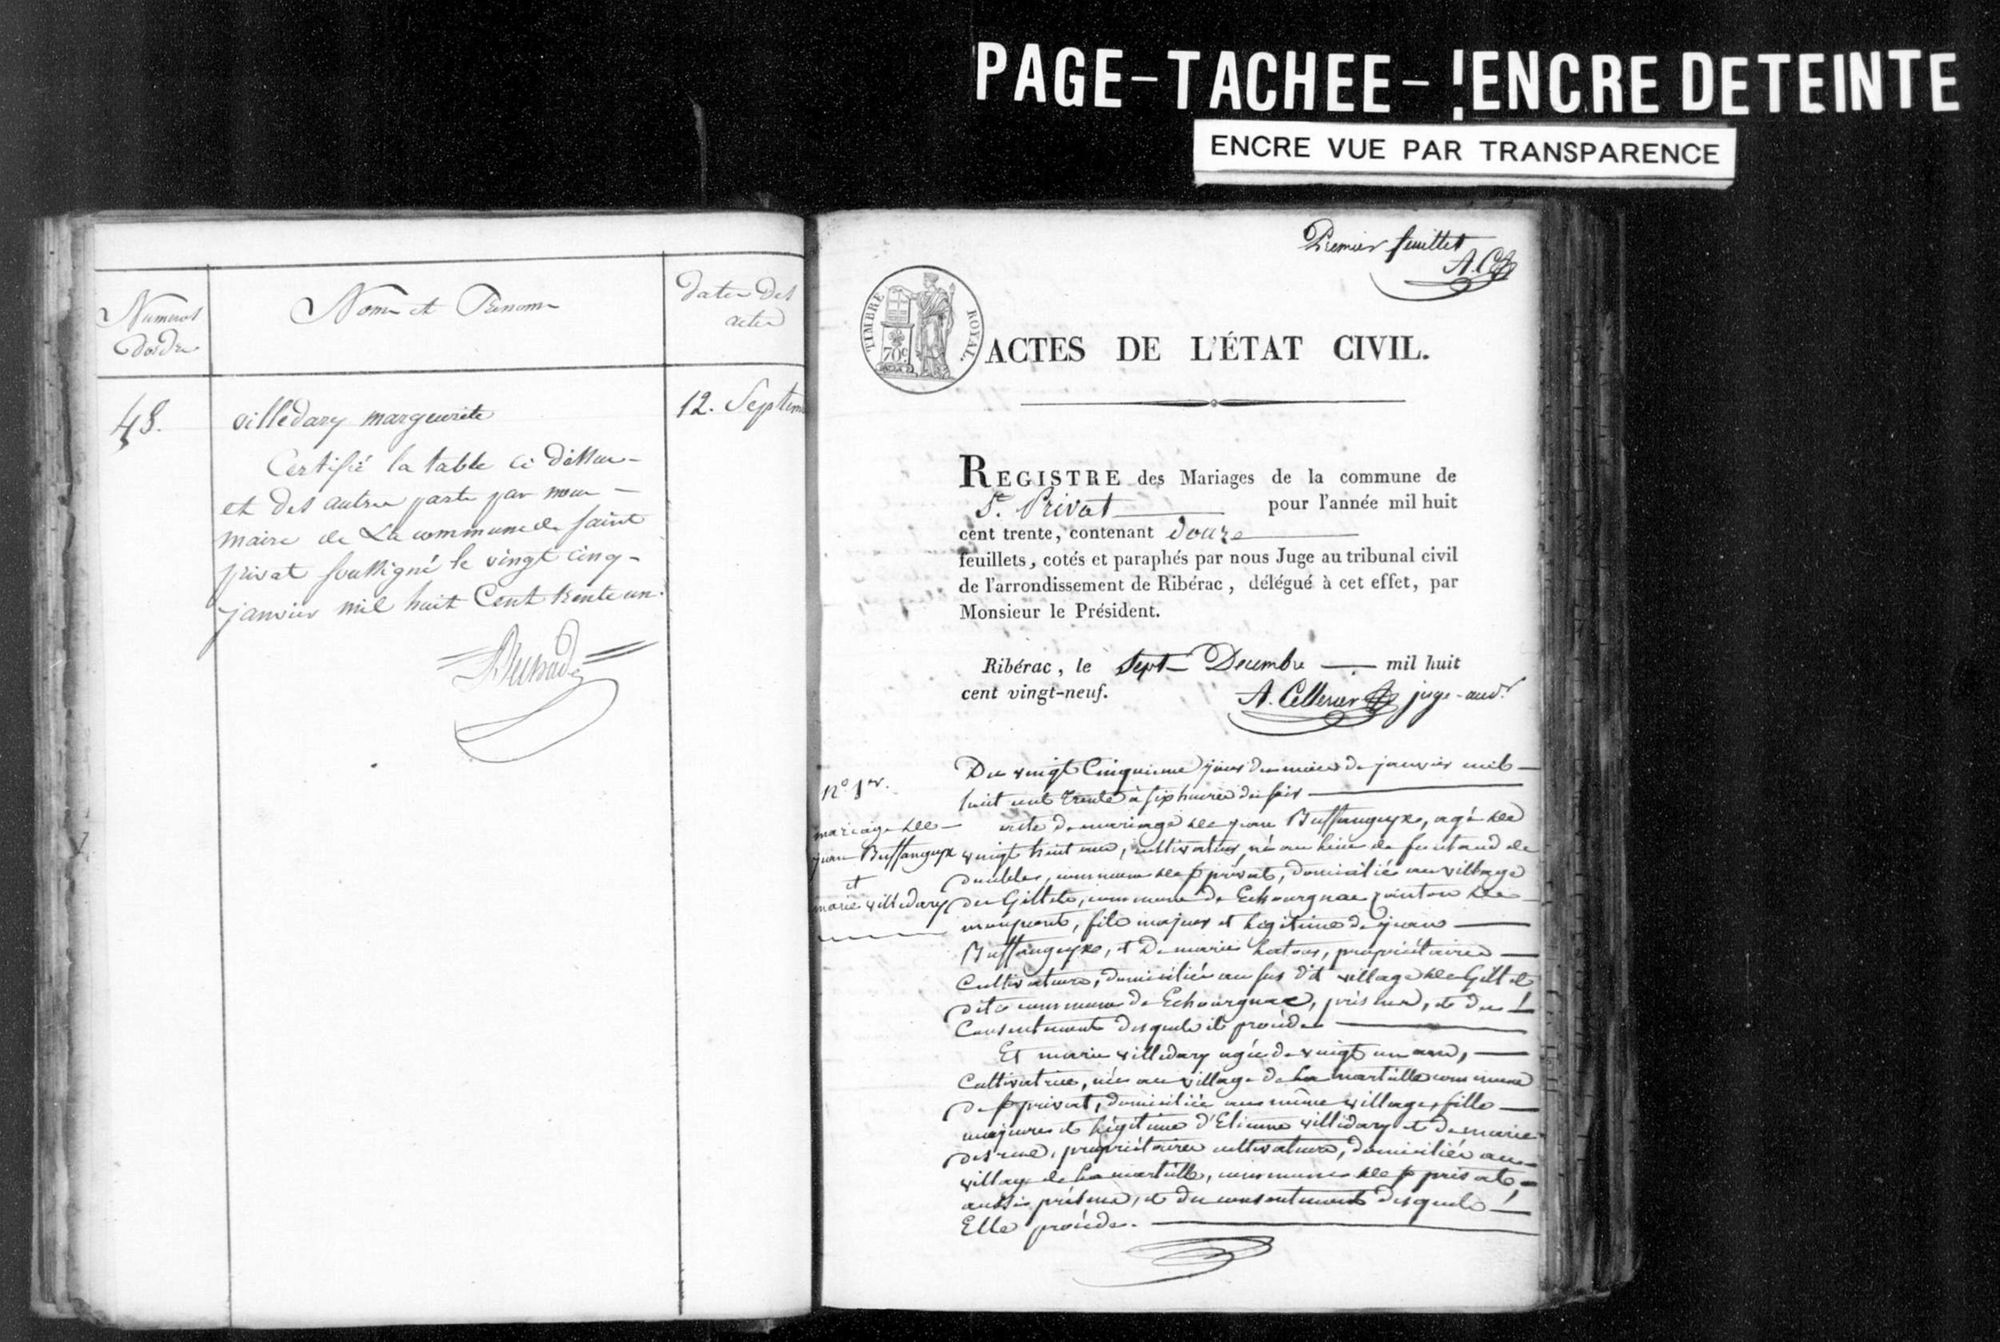 PAGE-TACHEE-!ENCRE DETEINTE
ENCRE VUE PAR TRANSPARENCE
Numeros
Nom et Prenom
dates des
actes
48.
villedary margueritte
12. Septem
Certifié la table ci dessus
et des autres parts par nous
maire de La commune de saint
privat soussigné le vingt cinq
janvier mil huit Cent trente un.
Premier feuillet
A.C.
TIMBRE ROYAL
70c
ACTES DE L'ÉTAT CIVIL.
REGISTRE des Mariages de la commune de
St. Privat pour l'année mil huit
cent trente, contenant douze
feuillets, cotés et paraphés par nous Juge au tribunal civil
de l'arrondissement de Ribérac, délégué à cet effet, par
Monsieur le Président.
Ribérac, le Sept Decembre mil huit
cent vingt-neuf.
A. Cellerier juge-audr
n° 1er.
mariage de
jean Buffangeyx
et
marie villedary
Du vingt Cinquieme jour du mois de janvier mil
huit cent trente à six heures du soir
acte de mariage de jean Buffangeyx, agé de
vingt huit ans, cultivateur, né au lieu de de
double, commune de st privat, domicilié au village
de Gillets, commune de Echourgnac canton de
monpont, fils majeur et légitime de jean
Buffangeyx, et De marie, propriétaires
Cultivateurs, domiciliés au sus dit village de Gillets
dite commune de Echourgnac, présens, et du
Consentement desquels il procède
Et marie villedary agée de vingt un ans,
Cultivatrice, née au village de La martille commune
de st privat, domiciliée au même village, fille
majeure et légitime d'Etienne villedary et de marie
propriétaires cultivateurs, domiciliés au
village de La martille, commune de st privat,
aussi présens, et du consentement desquels
Elle procède.